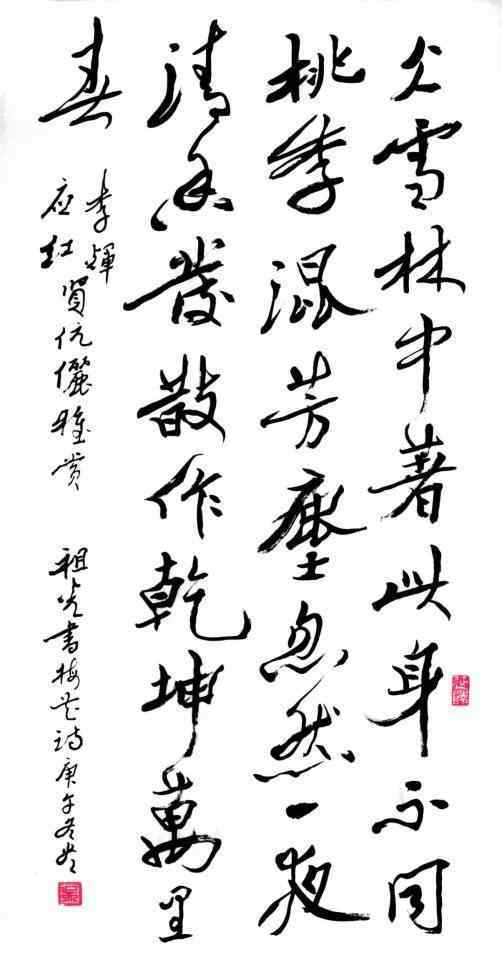 冰雪林中著此身不同
桃李混芳塵忽然一夜
清香發散作乾坤萬里
春
李輝
应红賢伉儷雅賞
祖光書梅花诗庚午冬